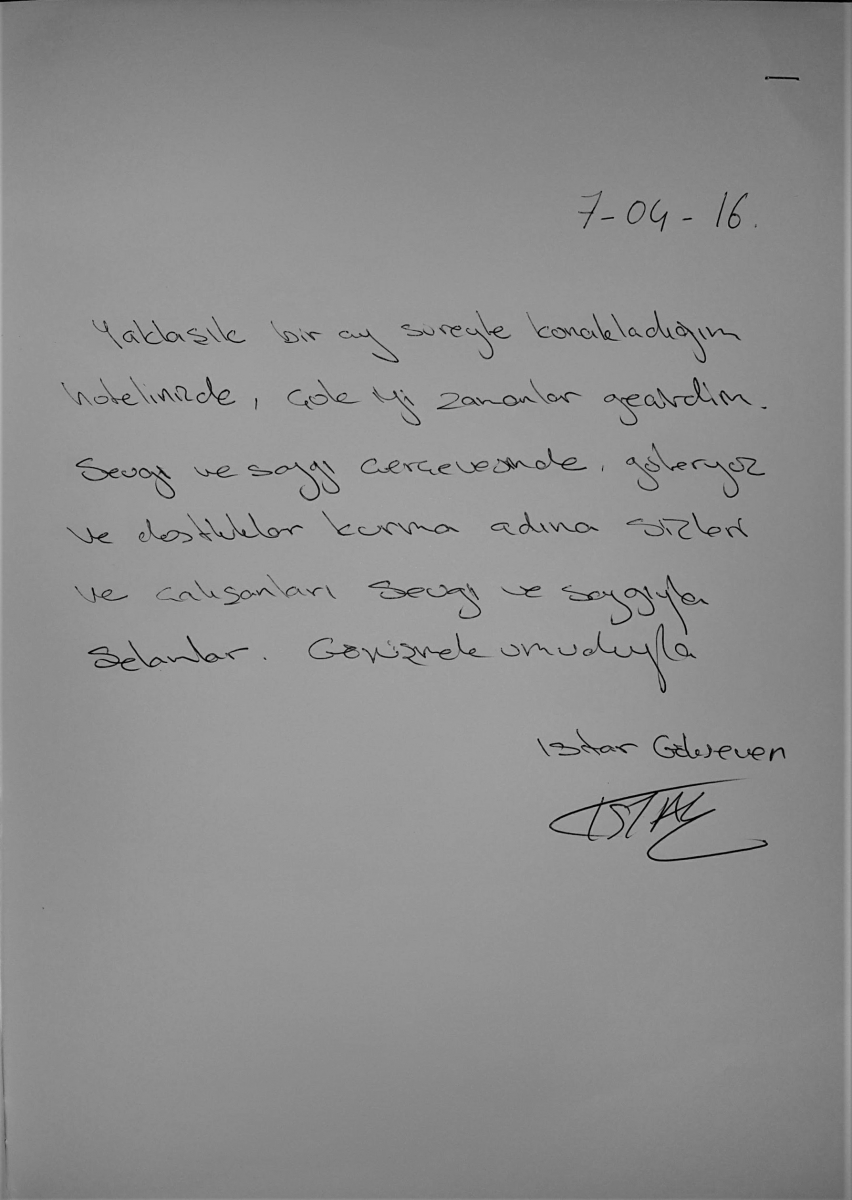 7-04-16.
Yaklaşık bir ay süreyle konakladığım
hotelinizde, çok iyi zamanlar geçirdim.
Sevgi ve saygı çerçevesinde, güleryüz
ve dostluklar kurma adına sizleri
ve çalışanları sevgi ve saygıyla
Selamlar. Görüşmek umuduyla
Istar Gökseven
ISTAR